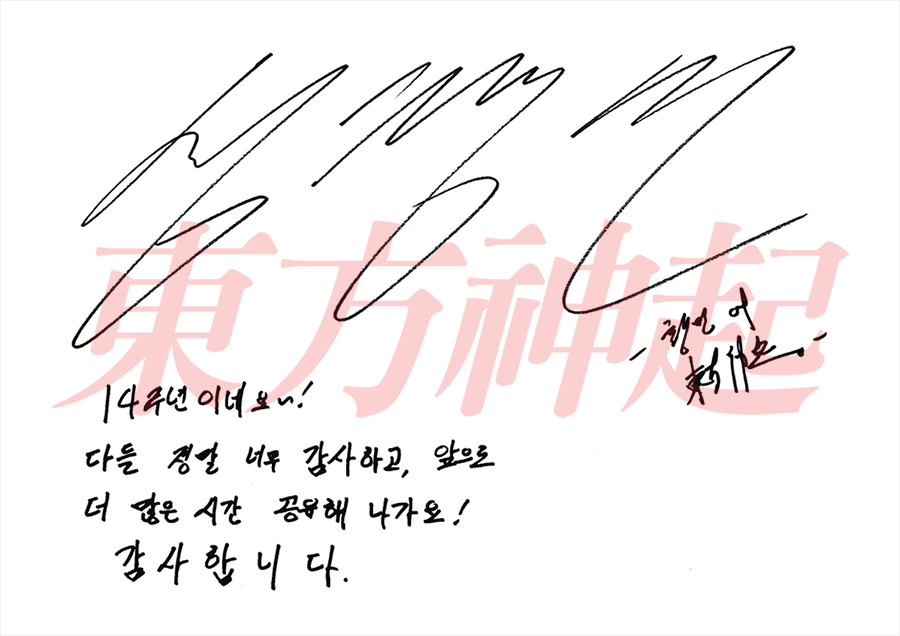 심창민
東方神起
영원히
東方神起
14주년이네요~!
다들 정말 너무 감사하고, 앞으로
더 많은 시간 공유해 나가요!
감사합니다.